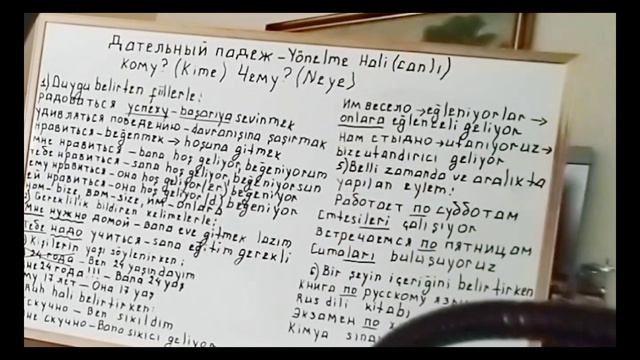 Дательный падеж – Yönelme Hali (canlı)
кому? (Kime) Чему? (Neye)
1) Duygu belirten fiillerle:
радоваться успеху – başarıya sevinmek
удивляться поведению – davranışına şaşırmak
нравиться – beğenmek → hoşuna gitmek
мне нравиться – bana hoş geliyor, beğeniyorum
тебе нравиться – sana hoş geliyor, beğeniyorsun
ему нравиться – ona hoş geliyor(er) beğeniyor
ей нравиться – ona hoş geliyor(d) beğeniyor
нам – bize, вам – size, им – onlara
Gereklilik bildiren kelimelerle:
мне нужно домой – Bana eve gitmek lazım
тебе надо учиться – sana eğitim gerekli
Kişilerin yaşı söylenirken:
24 года – Ben 24 yaşındayım
24 года !!! – Bana 24 yaş
17 лет – Ona 17 yaş
Ruh hali belirtirken:
скучно – Ben sıkıldım
не скучно – Bana sıkıcı geliyor
Им весело → eğleniyorlar →
onlara eğlenceli geliyor
Нам стыдно → utanıyoruz →
bize utandırıcı geliyor
5) Belli zamanda ve aralıkta
yapılan eylem:
Работает по субботам
Cmtesileri çalışıyor
Встречаемся по пятницам
Cumaları buluşuyoruz
6) Bir şeyin içeriğini belirtirken
книга по русскому
Rus dili kitabı
Экзамен по
Kimya